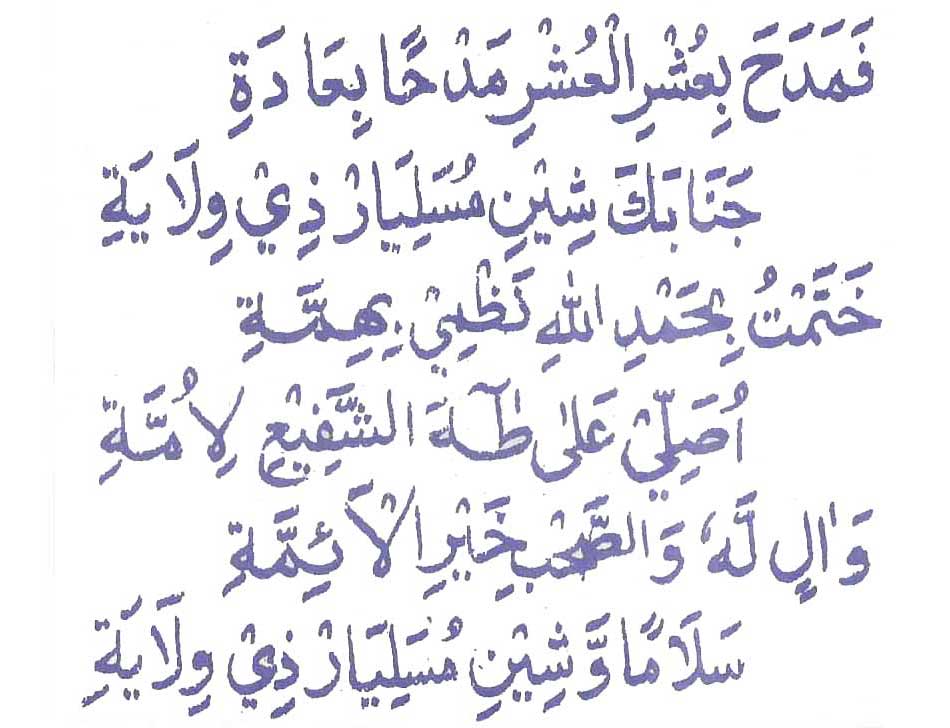 فَمَدَحَ بِعُشْرِ الْعُشْرِ مَدْحًا بِعَادَةِ
جَنَابَكَ شِيْنِ مُسَلِيَارْ ذِيْ وِلَايَةِ
خَتَمْتُ بِحَمْدِ اللهِ نَظْمِيْ بِهِمَّةِ
اُصَلِّيْ عَلٰى طٰهَ الشَّفِيْعِ لِاُمَّةِ
وَاٰلٍ لَّهٗ وَالصَّحْبِ خَيْرِ الْاَئِمَّةِ
سَلَامًا وَّشِيْنِ مُسَلِيَارْ ذِيْ وِلَايَةِ